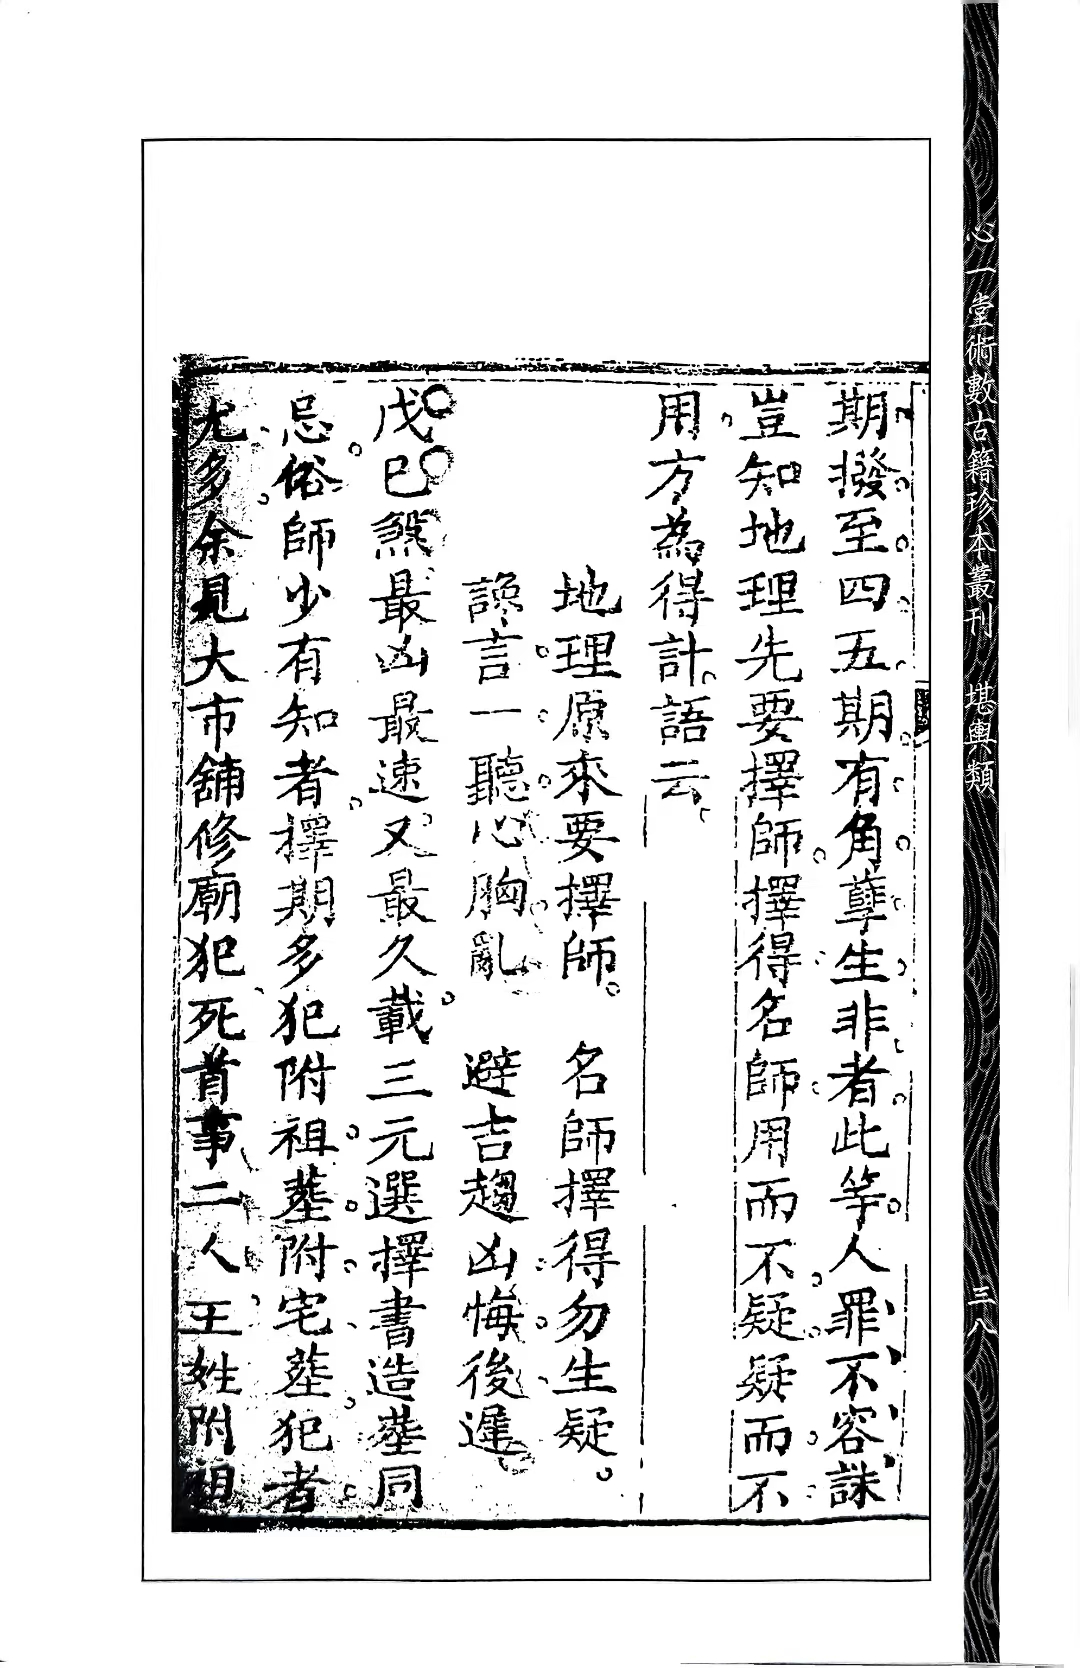 心一堂術數古籍珍本叢刊 堪輿類
三八
期撥至四五期有角孽生非者此等人罪不容誅
豈知地理先要擇師擇得名師用而不疑疑而不
用方為得計語云
地理原來要擇師 名師擇得勿生疑
讒言一聽心胸亂 避吉趨凶悔後遲
戊巳煞最凶最速又最久載三元選擇書造塟同
忌俗師少有知者擇期多犯附祖塟附宅塟犯者
尤多余見大市舖修廟犯死首事二人王姓附祖